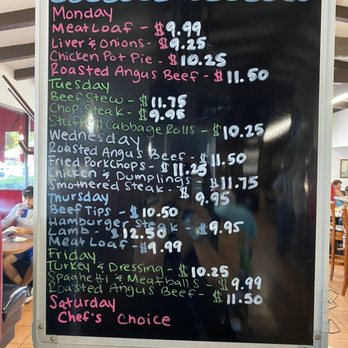 Monday
Meatloaf - $9.99
Liver & Onions - $9.25
Chicken Pot Pie - $10.25
Roasted Angus Beef - $11.50
Tuesday
Beef Stew - $11.75
Chop Steak - $9.95
Stuffed Cabbage Rolls - $10.25
Wednesday
Roasted Angus Beef - $11.50
Fried Porkchops - $11.25
Chicken & Dumplings - $11.75
Smothered Steak - $9.95
Thursday
Beef Tips - $10.50
Hamburger Steak - $9.95
Lamb - $12.50
Meat Loaf - $9.99
Friday
Turkey & Dressing - $10.25
Spaghetti & Meatballs - $9.99
Roasted Angus Beef - $11.50
Saturday
Chef's Choice